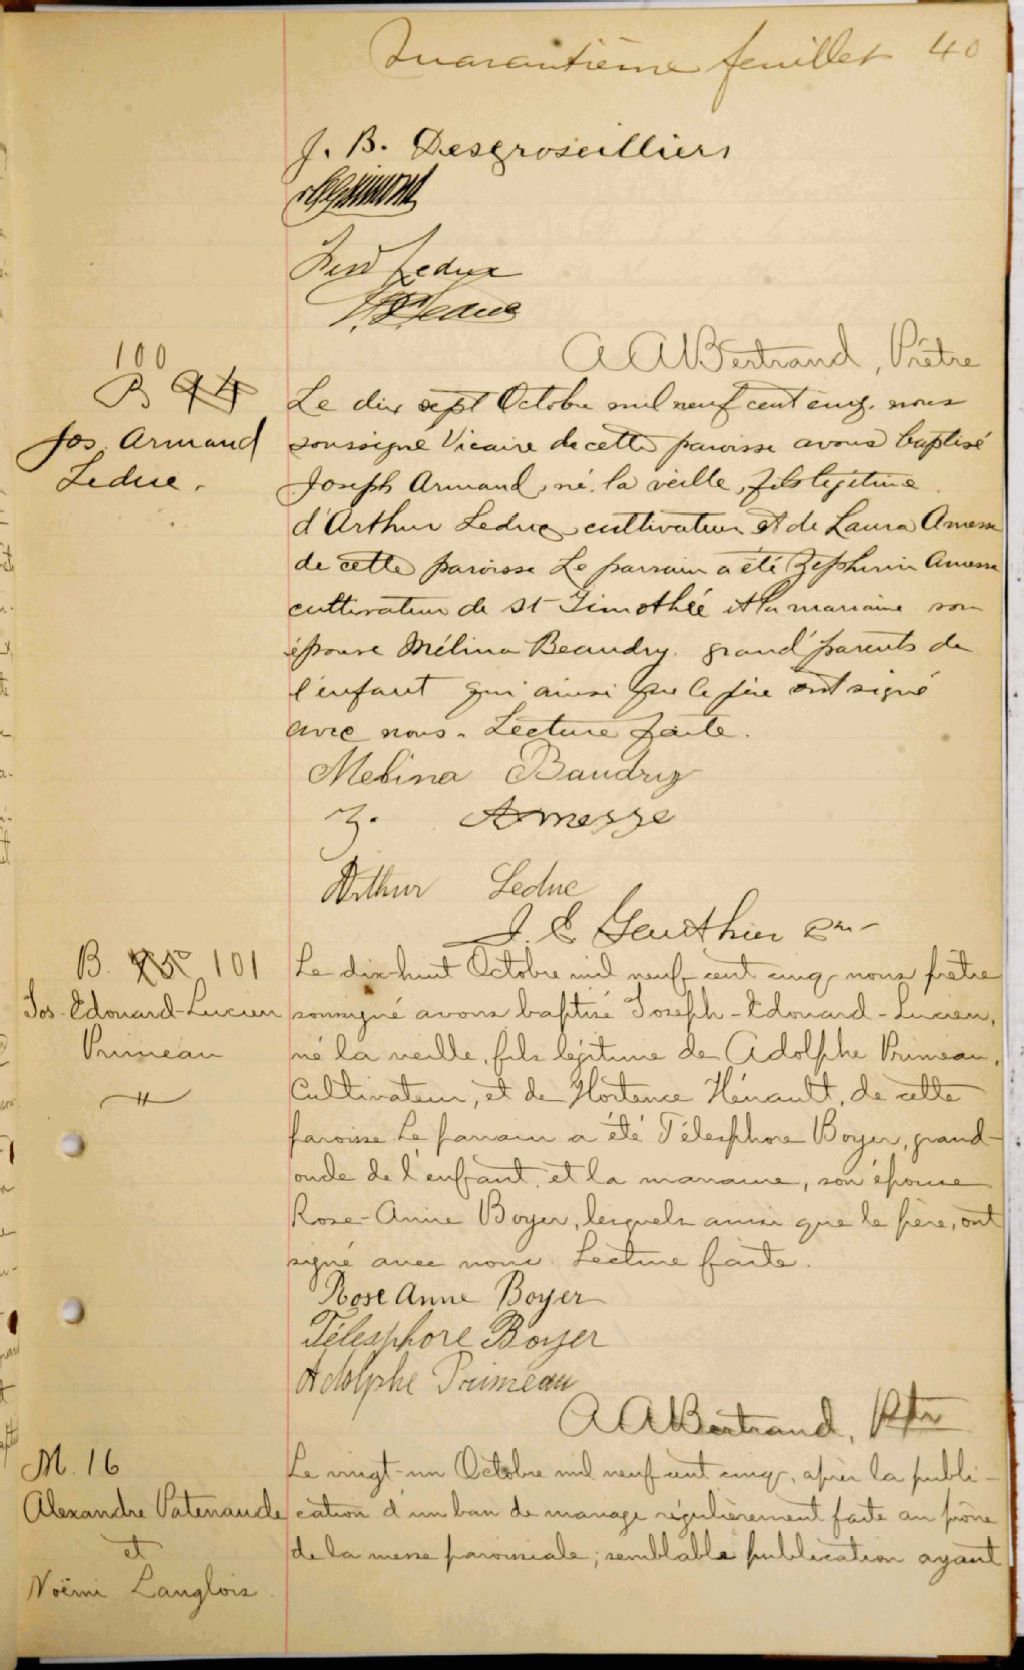 Quarantième feuillet 40
J. B. Desgroseilliers
Leduc
Leduc
A A Bertrand, Prêtre
100
B 94
Jos. Armand
Leduc.
Le dix sept Octobre mil neuf cent cinq. nous
soussigné Vicaire de cette paroisse avons baptisé
Joseph Armand, né la veille, fils légitime
d'Arthur Leduc, cultivateur et de Laura Amesse
de cette paroisse Le parrain a été Zéphirin Amesse
cultivateur de St Timothée et la marraine son
épouse Mélina Beaudry. grand'parents de
l'enfant qui ainsi que le père ont signé
avec nous. Lecture faite.
Melina Baudry
Z. Amesse
Arthur Leduc
J. E. Gauthier
B. 95 101
Jos-Edouard-Lucien
Primeau
Le dix-huit Octobre mil neuf-cent cinq, nous prêtre
soussigné avons baptisé Joseph-Edouard-Lucien,
né la veille, fils légitime de Adolphe Primeau,
Cultivateur, et de Hortence Hénault, de cette
paroisse. Le parrain a été Télesphore Boyer, grand-
oncle de l'enfant, et la marraine, son épouse
Rose-Anne Boyer, lesquels ainsi que le père, ont
signé avec nous. Lecture faite.
Rose Anne Boyer
Télesphore Boyer
Adolphe Primeau
A A Bertrand, Ptre
M. 16
Alexandre Patenaude
et
Noëmi Langlois.
Le vingt-un Octobre mil neuf cent cinq, après la publi-
cation d'un ban de mariage régulièrement faite au prône
de la messe paroissiale; semblable publication ayant